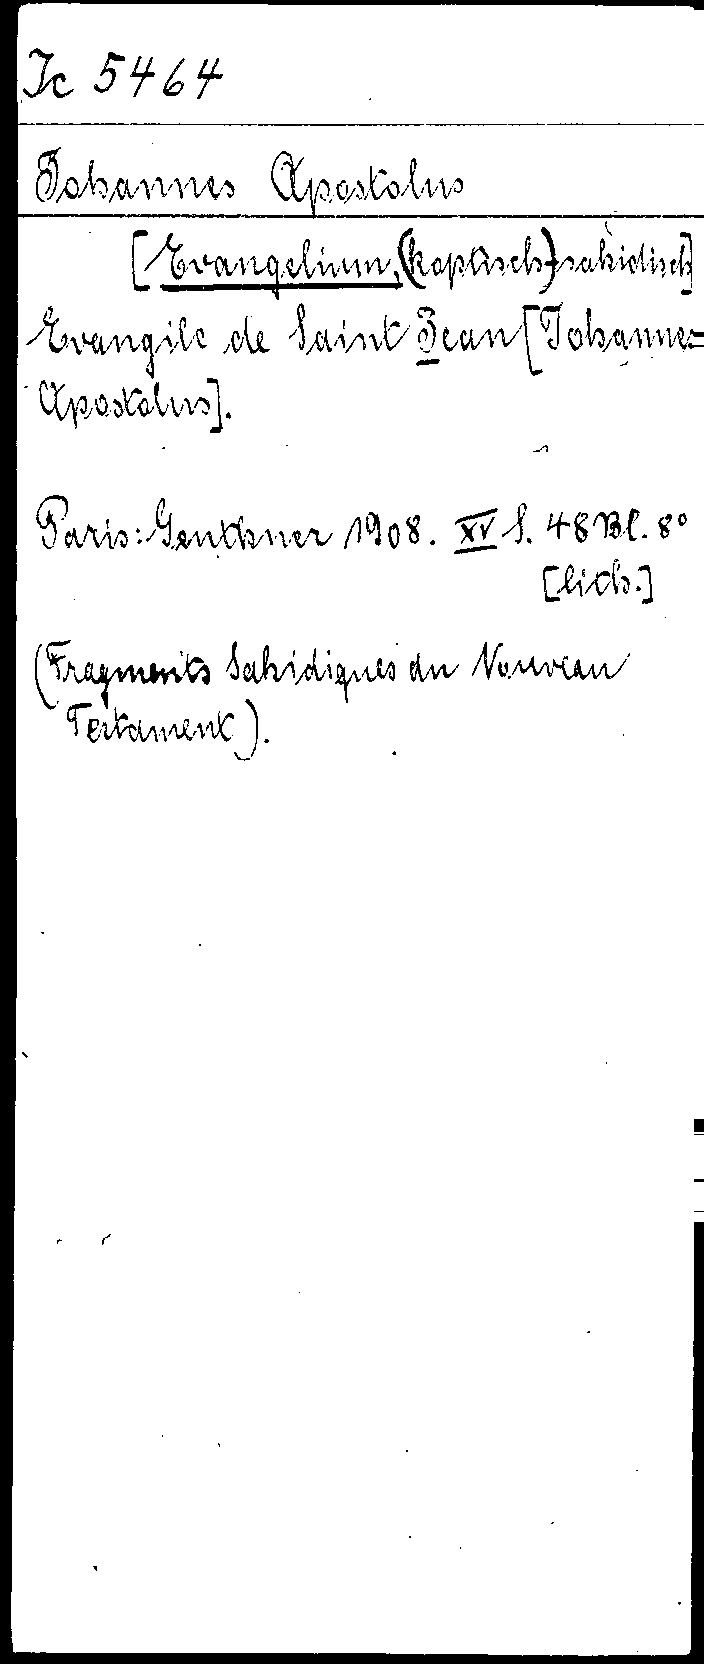 Ic 5464
Johannes Apostolus
[Evangelium, (koptisch)-sahidisch]
Evangile de Saint Jean [Johannes
Apostolus].
Paris: Genthner 1908. XV S. 48 Bl. 8°
[lith.]
(Fragments Sahidiques du Nouveau
Testament).